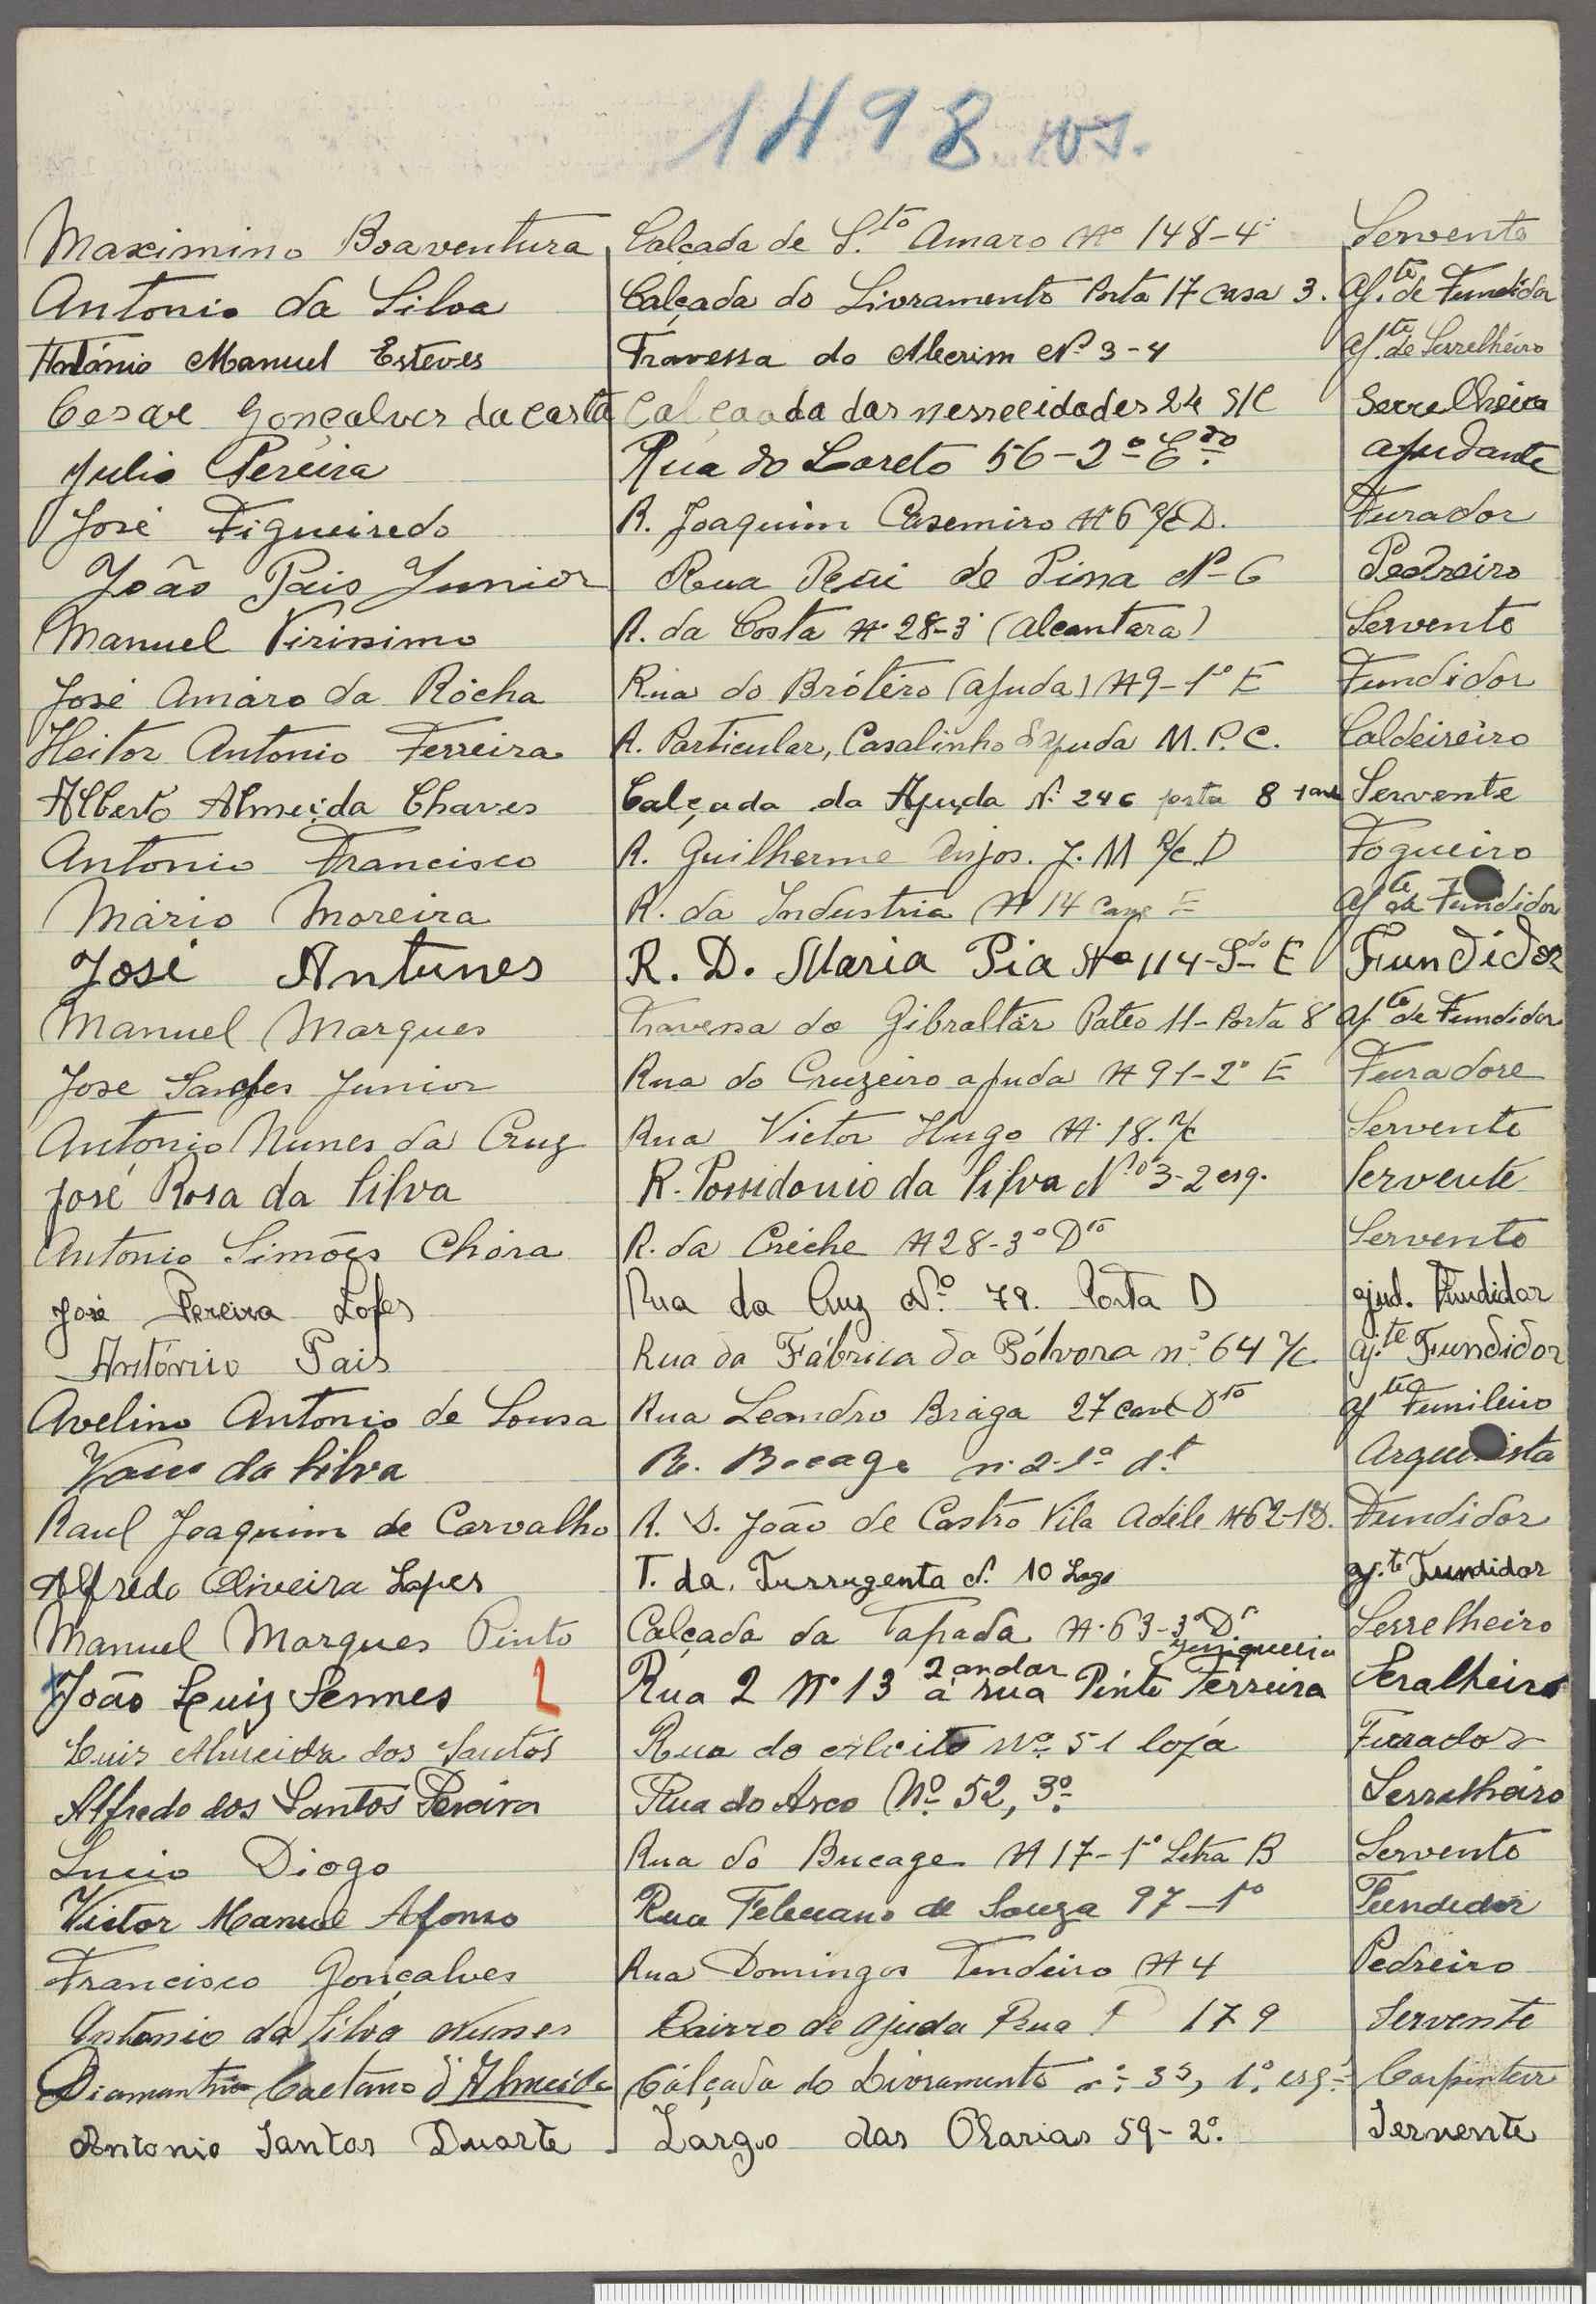 1498 vs.
Maximino Boaventura Calçada de S.to Amaro Nº 148-4º Servente
Antonio da Silva Calçada do Livramento Porta 17 casa 3. Aj.te de Fundidor
António Manuel Esteves Travessa do Alecrim Nº 3-4 Aj.te de Serrelheiro
Cesar Gonçalves da Costa Calçaada das nessecidades 24 S/C Serrelheiro
Julio Pereira Rua do Loreto 56-2º E.do ajudante
José Figueiredo R. Joaquim Casemiro Nº 6 R/C D. Furador
João Pais Junior Rua Rui de Pina Nº 6 Pedreiro
Manuel Virissimo R. da Costa Nº 28-3º (Alcantara) Servente
José Amáro da Rócha Rua do Brótéro (Ajuda) Nº 9-1º E Fundidor
Heitor Antonio Ferreira R. Particular, Casalinho d'Ajuda M.P.C. Caldeireiro
Alberto Almeida Chaves Calçada da Ajuda Nº 246 porta 8 Servente
Antonio Francisco R. Guilherme Anjos. J. M R/C D Fogueiro
Mário Moreira R. da Industria Nº 14 Cave E Aj.te de Fundidor
José Antunes R. D. Maria Pia Nº 114-S- E Fundidor
Manuel Marques Travessa do Gibraltár Pateo 11-Porta 8 Aj.te de Fundidor
Jose Sanches Junior Rua do Cruzeiro Ajuda Nº 91-2º E Furadore
Antonio Nunes da Cruz Rua Victor Hugo Nº 18. R/C Servente
José Rosa da Silva R. Possidonio da Silva N.º 3-2 esq. Servente
Antonio Simões Chora R. da Creche Nº 28-3º Dto Servente
José Pereira Lopes Rua da Cruz Nº 79. Porta D ajud. Fundidor
António Pais Rua da Fábrica da Pólvora nº 64 r/c aj.te Fundidor
Avelino Antonio de Sousa Rua Leandro Braga 27 cave Dto Aj.te Funileiro
da Silva R. Bocage nº 2-1º d.t
Raul Joaquim de Carvalho R. D. João de Castro Vila Adéle Nº 62-1 D. Fundidor
Alfredo Oliveira Lopes T. da. Turrugenta Nº 10 Loga aj.te Fundidor
Manuel Marques Pinto Calçada da Tapada Nº 63-3º D.to Serrelheiro
João Luiz Semes 2 Rua 2 Nº 13 2 andar á rua Pinto Ferreira Junqueira Seralheiro
Luis Almeida dos Santos Rua do Alvito Nº 51 lojá Furador
Alfredo dos Santos Pereira Rua do Arco Nº 52, 3º Serralheiro
Lucio Diogo Rua do Bucage Nº 17-1º Letra B Servente
Victor Manuel Afonso Rua Feleciano de Souza 97-1º Fundidor
Francisco Gonçalves Rua Domingos Tendeiro Nº 4 Pedreiro
Antonio da Silva Nunes Bairro de Ajuda Rua 179 Servente
Diamantino Caetano d'Almeida Cálçada do Livramento nº 35, 1º esq. Carpinteir
Antonio Santos Duarte Largo das Olarias 59-2º. Servente